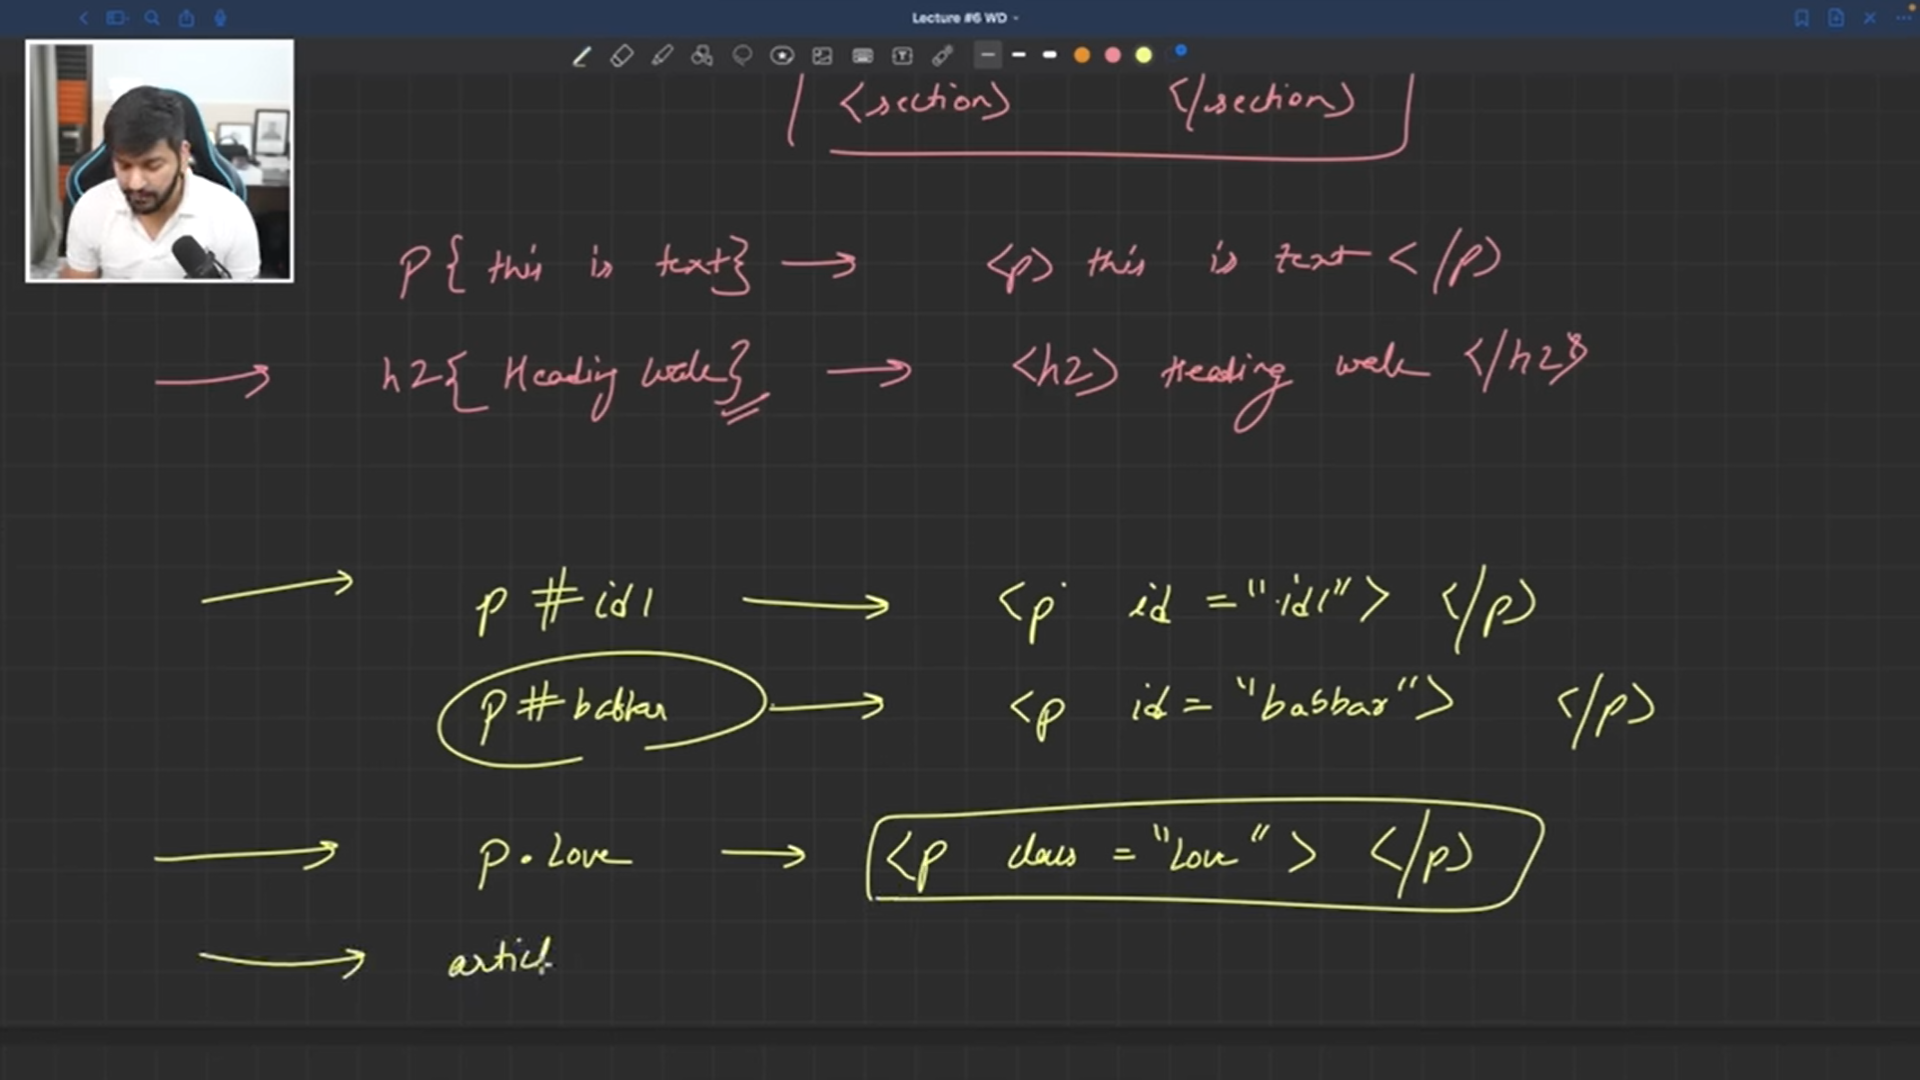 Lecture #6 WD
<section> </section>
p{ this is text} → <p> this is text </p>
→ h2{ Heading wala} → <h2> Heading wala </h2>
→ p #id1 → <p id = "id1"> </p>
p#babbar → <p id = "babbar"> </p>
→ p.Love → <p class = "Love"> </p>
→ articl